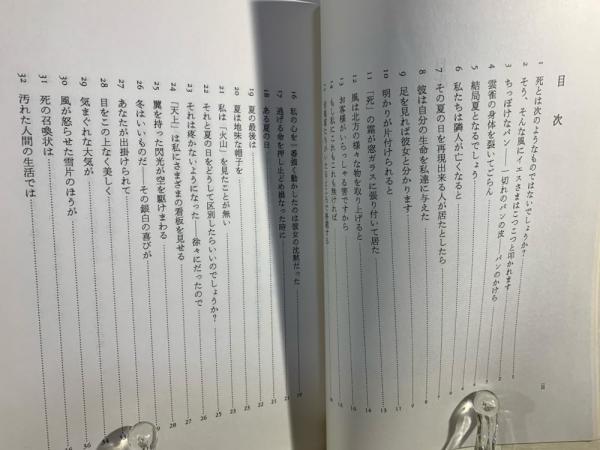 目次
1 死とは次のようなものではないでしょうか?
2 そう、そんな風にイエスさまはこつこつと叩かれます
3 ちっぽけなパン――一切れのパンの皮――パンのかけら
4 雲雀の身体を裂いてごらん
5 結局夏となるでしょう
6 私たちは隣人が亡くなると
7 その夏の日を再現出来る人が居たとしたら
8 彼は自分の生命を私達に与えた
9 足を見れば彼女と分かります
10 明かりが片付けられると
11 「死」の霜が窓ガラスに張り付いて居た
12 風は北方の様々な物を取り上げると
13 お客様がいらっしゃる筈ですから
14 もし私に
iii
16 私の心を一番強く動かしたのは彼女の沈黙だった
17 逃げる命を押し止どめ損なった時に
18 ある夏の日
19 夏の最後は
20 夏は地味な帽子を
21 私は「火山」を見たことが無い
22 それと夏の日をどうして区別したらいいのでしょうか?
23 それは疼かないようになった――徐々にだったので
24 「天上」は私にさまざまの看板を見せる
25 翼を持った閃光が空を駆けまわる
26 冬はいいものだ――その銀白の喜びが
27 あなたが出掛けられて
28 目をこの上なく美しく
29 気まぐれな大気が
30 風が怒らせた雪片のほうが
31 死の召喚状は
32 汚れた人間の生活では